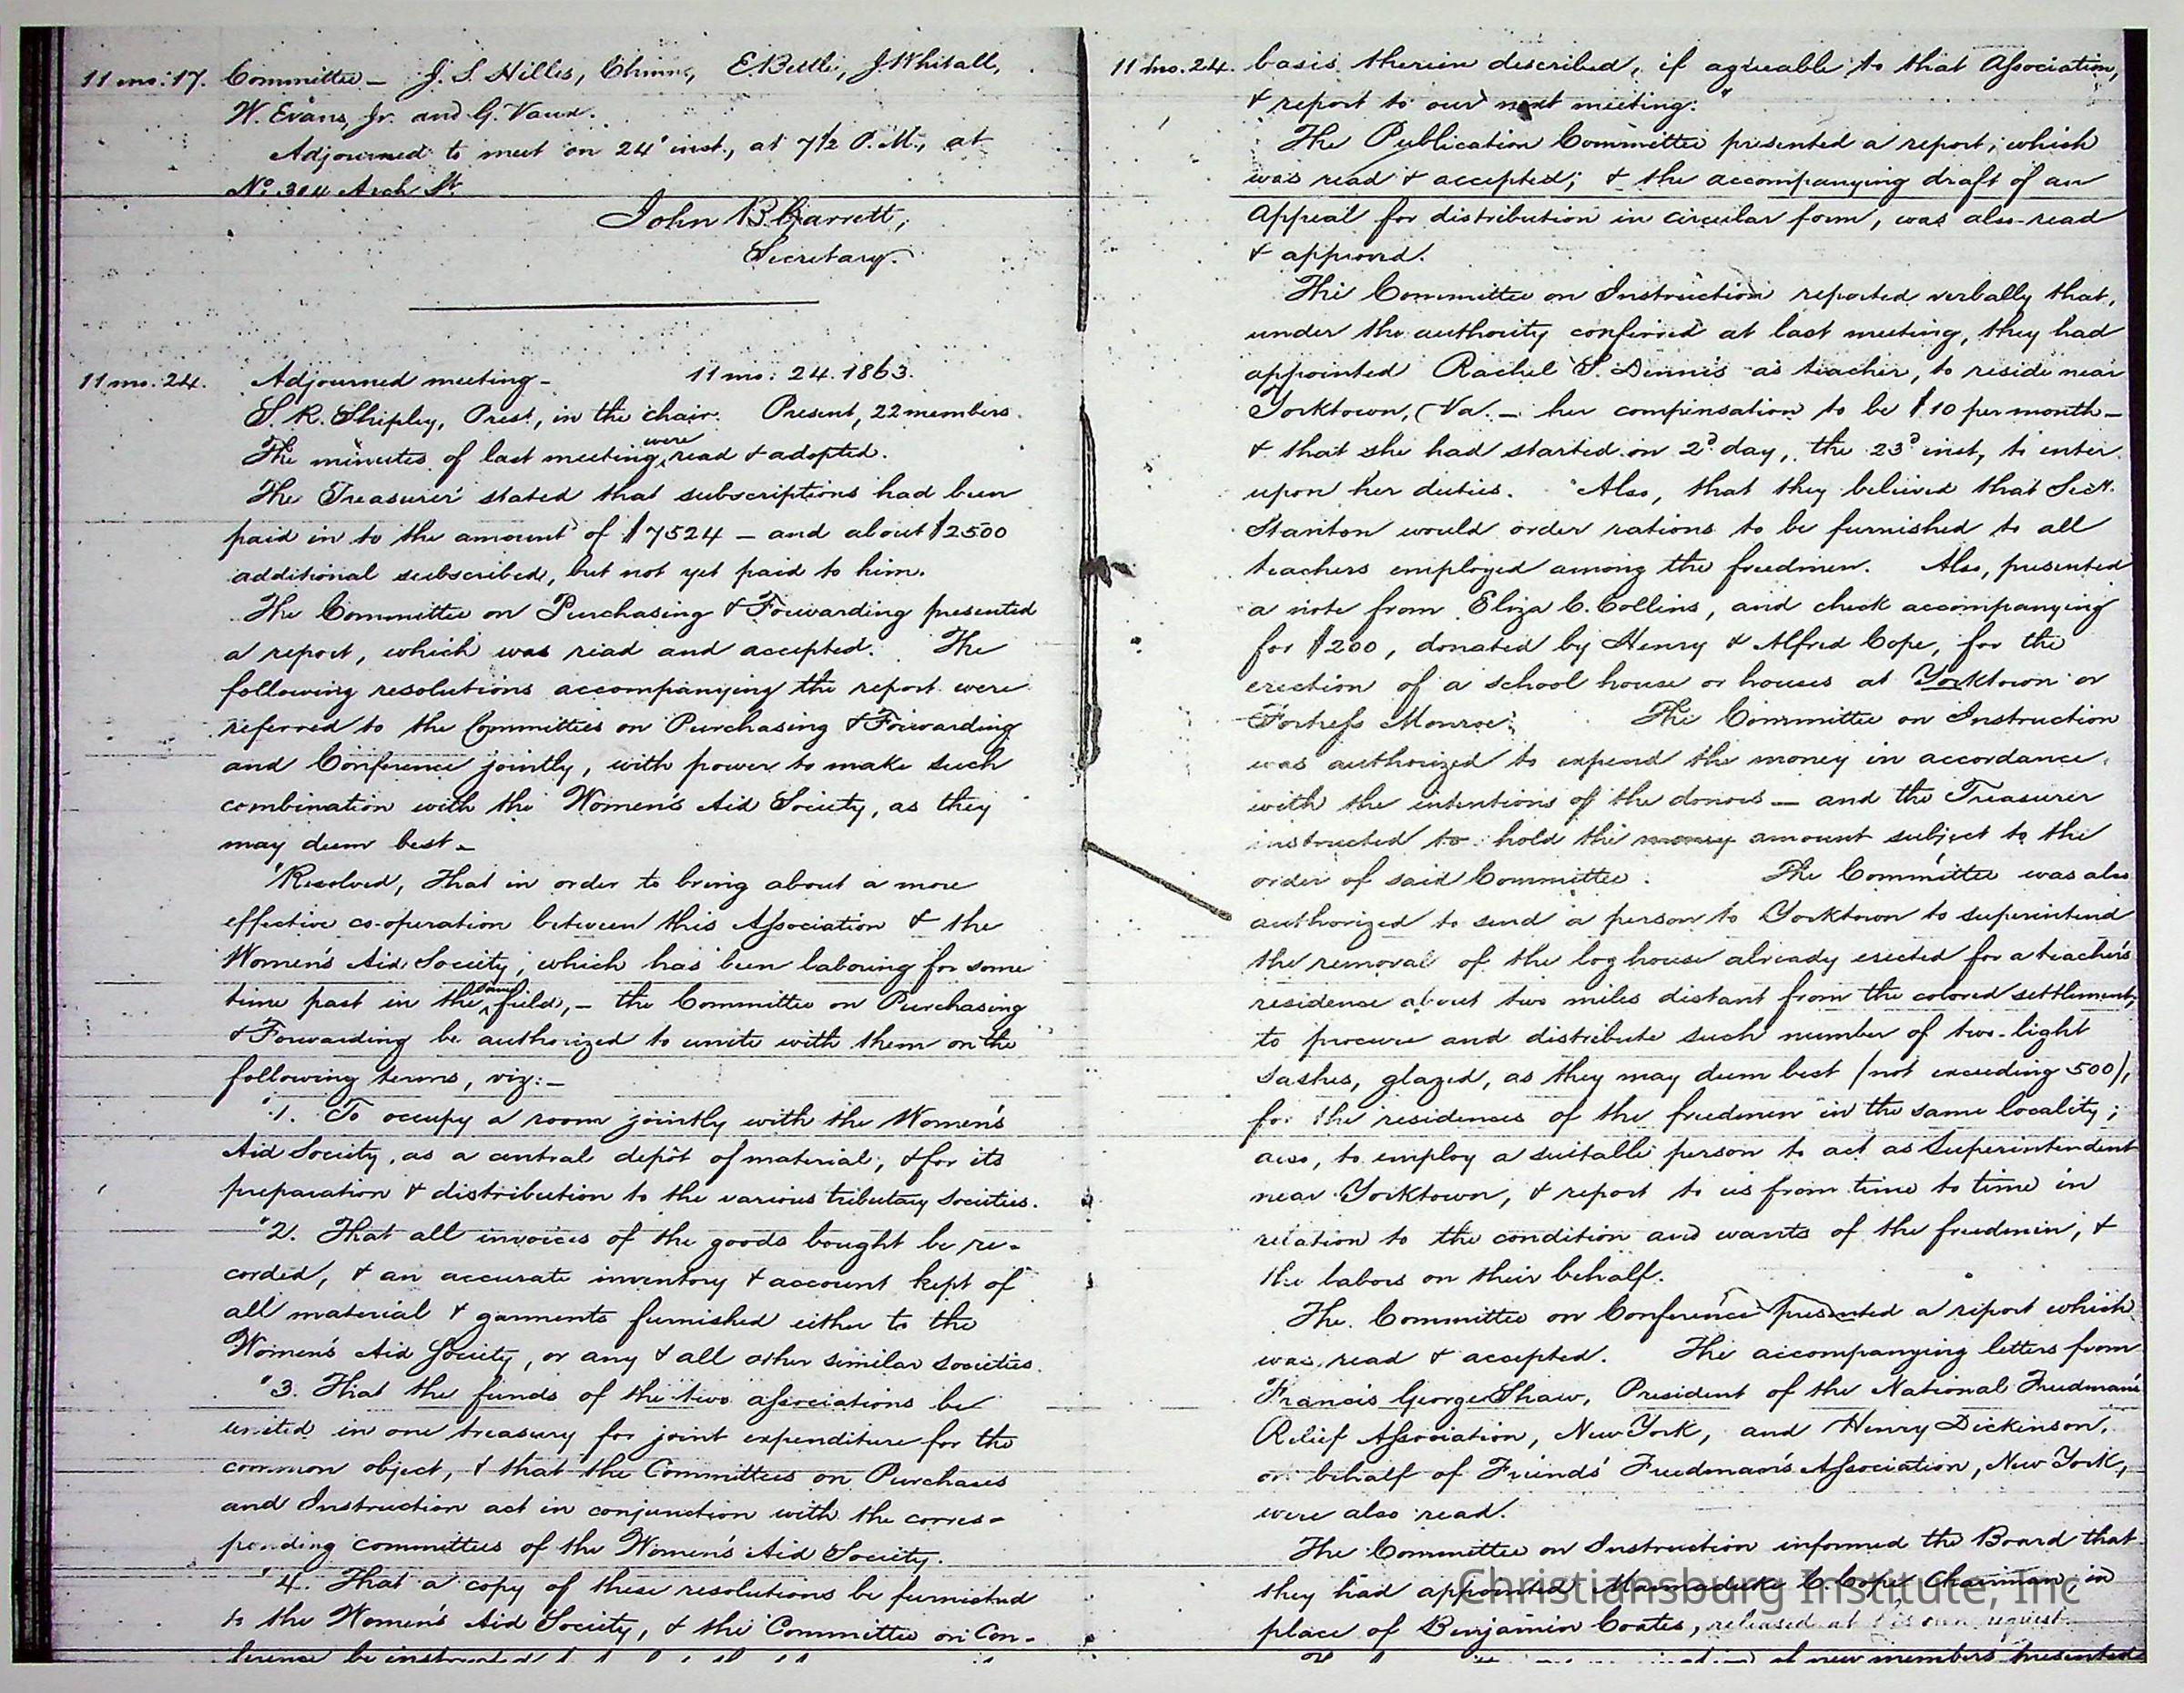 11 mo: 17. Committee — J. S. Hilles, Chmn, E. Bettle, J. Whitall,
W. Evans, Jr. and G. Vaux.
Adjourned to meet on 24' inst., at 7½ P. M., at
No. 304 Arch St.
John B. Garrett,
Secretary.
11 mo. 24. Adjourned meeting — 11 mo: 24. 1863.
S. R. Shipley, Prest., in the chair. Present, 22 members.
The minutes of last meeting were read & adopted.
The Treasurer stated that subscriptions had been
paid in to the amount of $7524 — and about $2500
additional subscribed, but not yet paid to him.
The Committee on Purchasing & Forwarding presented
a report, which was read and accepted. The
following resolutions accompanying the report were
referred to the Committees on Purchasing & Forwarding
and Conference jointly, with power to make such
combination with the Women's Aid Society, as they
may deem best —
"Resolved, That in order to bring about a more
effective co-operation between this Association & the
Women's Aid Society, which has been laboring for some
time past in the same field, — the Committee on Purchasing
& Forwarding be authorized to unite with them on the
following terms, viz: —
"1. To occupy a room jointly with the Women's
Aid Society, as a central depôt of material, & for its
preparation & distribution to the various tributary Societies.
"2. That all invoices of the goods bought be re-
corded, & an accurate inventory & account kept of
all material & garments furnished either to the
Women's Aid Society, or any & all other similar societies.
"3. That the funds of the two associations be
united in one treasury for joint expenditure for the
common object, & that the Committees on Purchases
and Instruction act in conjunction with the corres-
ponding committees of the Women's Aid Society.
"4. That a copy of these resolutions be furnished
to the Women's Aid Society, & the Committee on Con-
ference be instructed
11 mo. 24. basis therein described, if agreeable to that Association,
& report to our next meeting."
The Publication Committee presented a report, which
was read & accepted; & the accompanying draft of an
Appeal for distribution in circular form, was also read
& approved.
The Committee on Instruction reported verbally that,
under the authority conferred at last meeting, they had
appointed Rachel S. Dennis as teacher, to reside near
Yorktown, Va. — her compensation to be $10 per month —
& that she had started on 2d day, the 23d inst, to enter
upon her duties. Also, that they believed that Secy.
Stanton would order rations to be furnished to all
teachers employed among the freedmen. Also, presented
a note from Eliza C. Collins, and check accompanying
for $200, donated by Henry & Alfred Cope, for the
erection of a school house or houses at Yorktown or
Fortress Monroe. The Committee on Instruction
was authorized to expend the money in accordance
with the intentions of the donors — and the Treasurer
instructed to hold the money amount subject to the
order of said Committee. The Committee was also
authorized to send a person to Yorktown to superintend
the removal of the log house already erected for a teacher's
residence about two miles distant from the colored settlement;
to procure and distribute such number of two-light
sashes, glazed, as they may deem best (not exceeding 500),
for the residences of the freedmen in the same locality;
also, to employ a suitable person to act as Superintendent
near Yorktown, & report to us from time to time in
relation to the condition and wants of the freedmen, &
the labors on their behalf.
The Committee on Conference presented a report which
was read & accepted. The accompanying letters from
Francis George Shaw, President of the National Freedman's
Relief Association, New York, and Henry Dickinson,
on behalf of Friends' Freedman's Association, New York,
were also read.
The Committee on Instruction informed the Board that
they had appointed Marmaduke C. Cope Chairman, in
place of Benjamin Coates, released at his own request.
new members presented
Christiansburg Institute, Inc